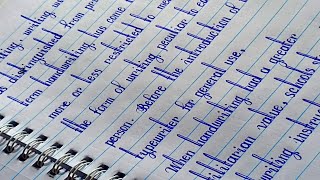 writing, writing
as distinguished from print
term handwriting has come
more or less restricted to mean
the form of writing peculiar to each
person. Before the introduction of
typewriter for general use,
When handwriting had a greater
utilitarian value, schools
writing instru